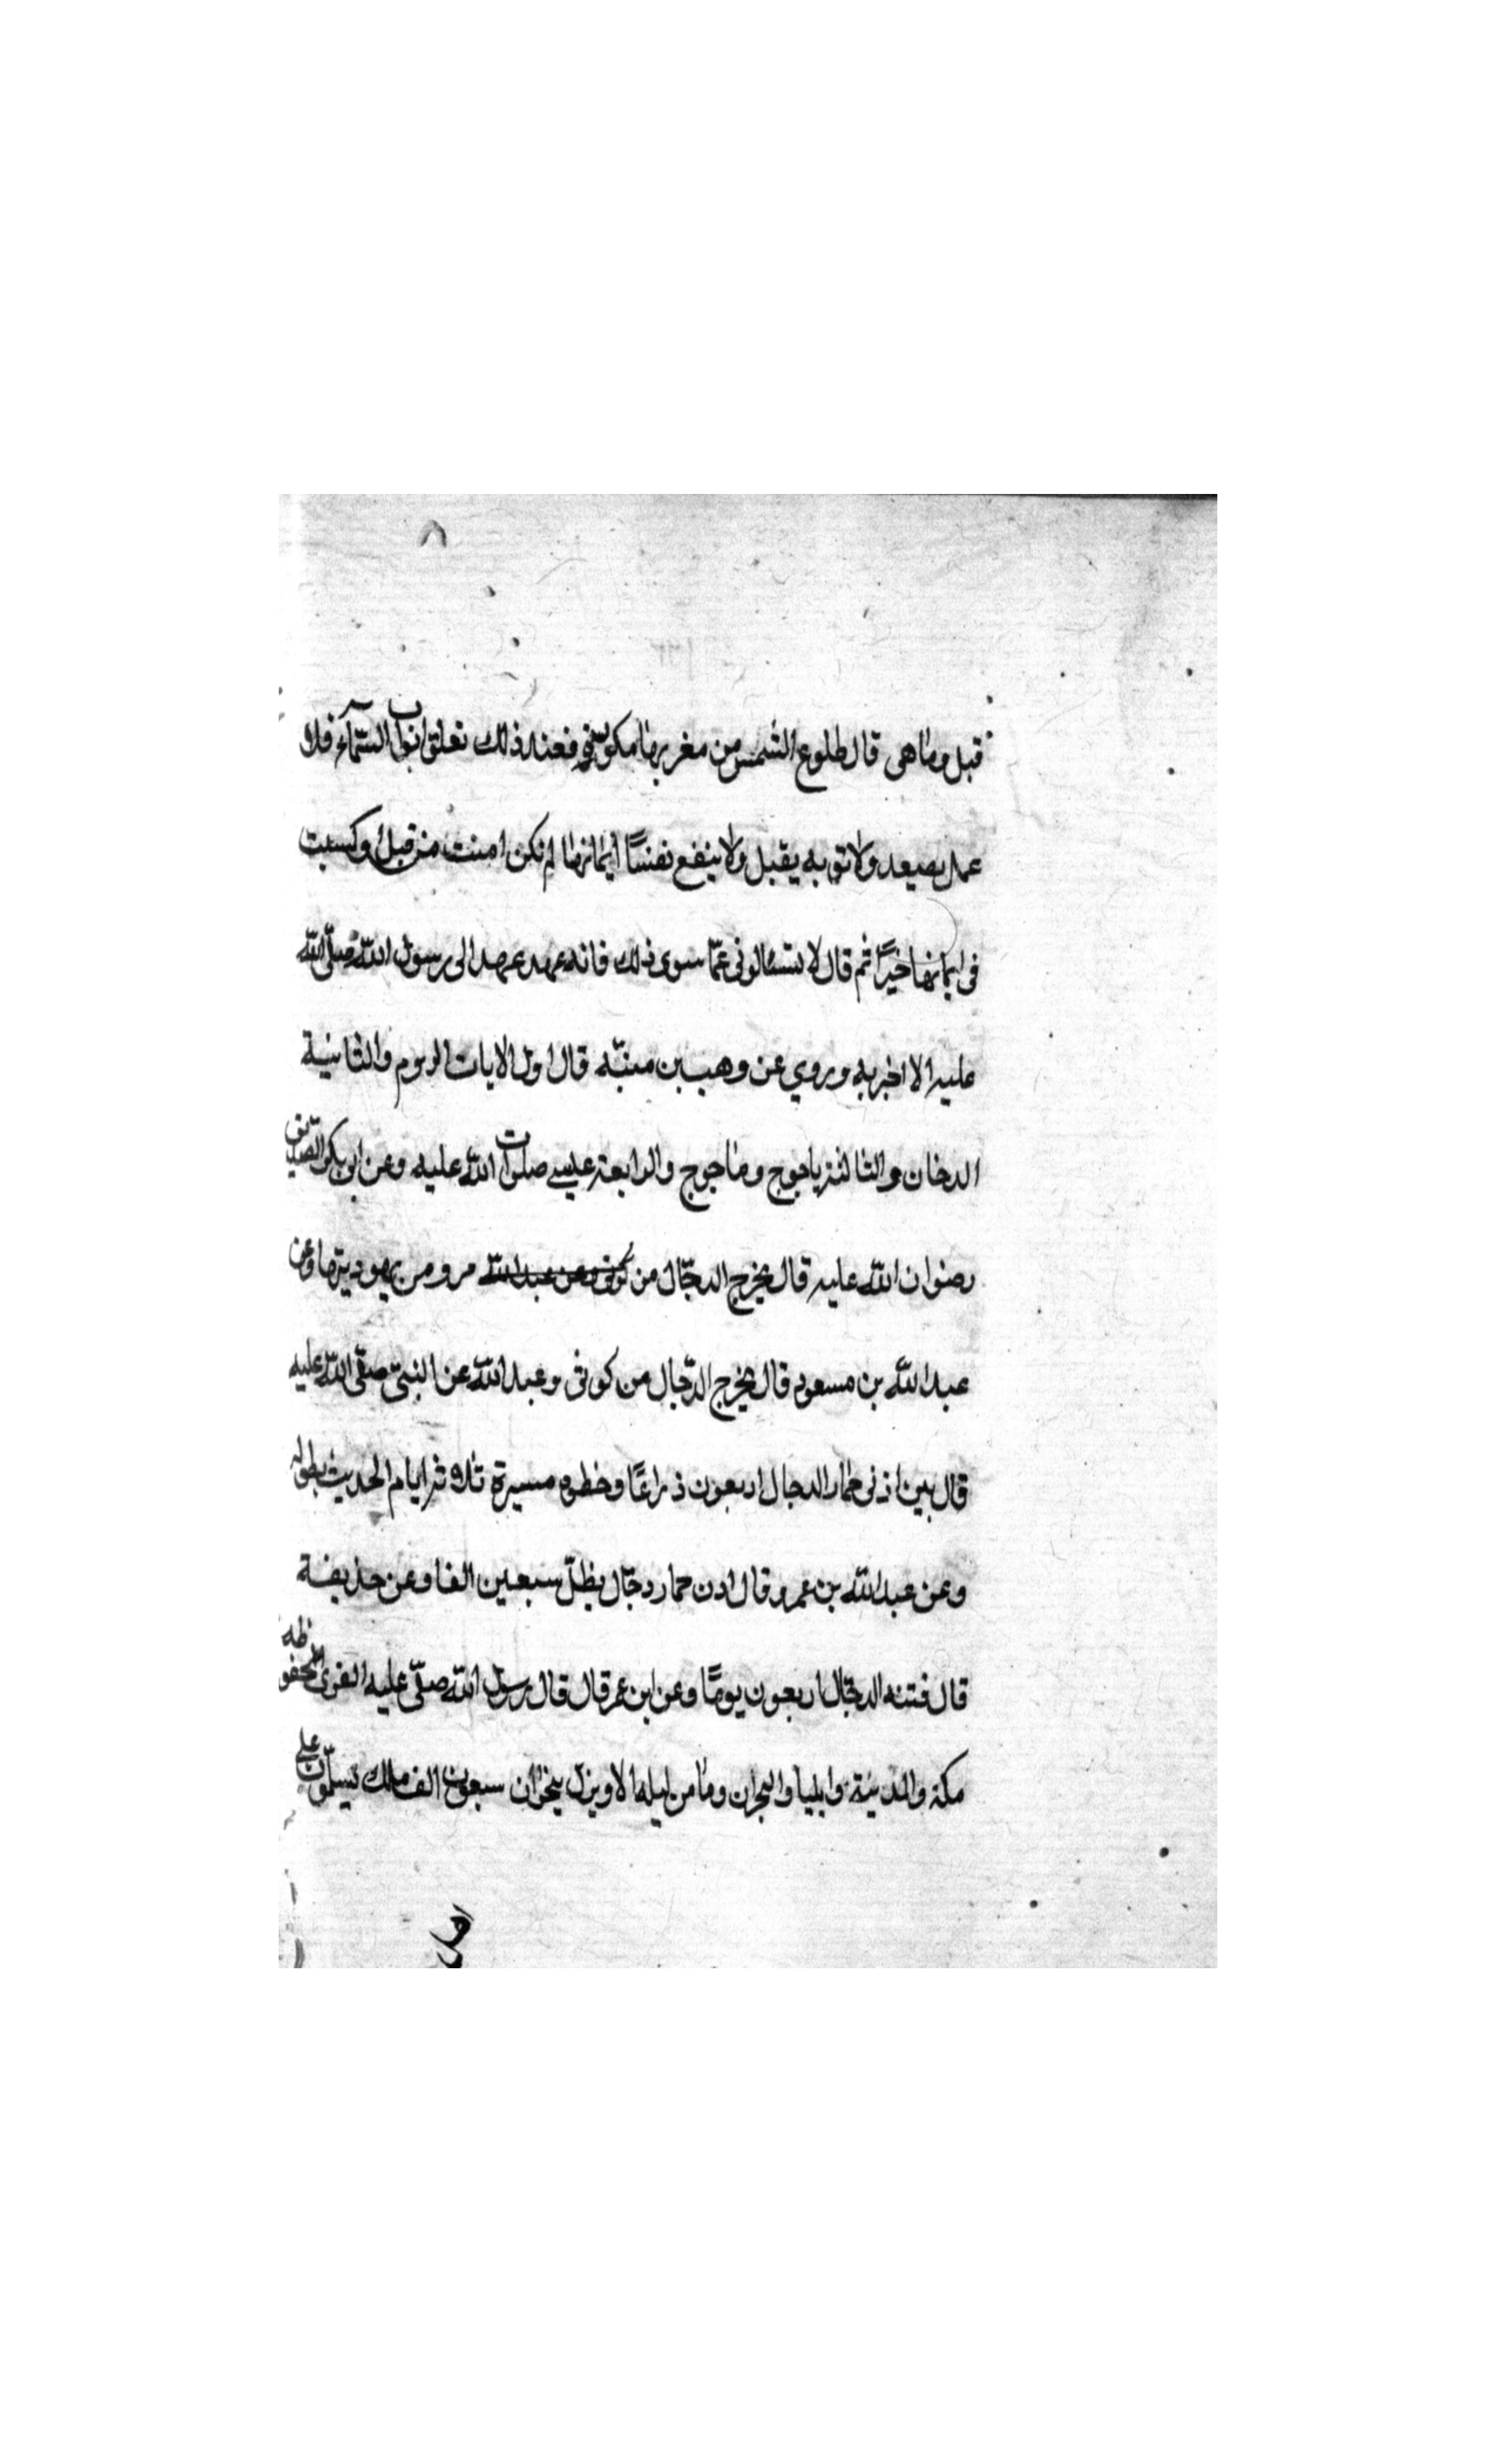 ٨
قبل وما هى قال طلوع الشمس من مغربها مكورة فعند ذلك تغلق ابواب السمآء فلا
عمل يصعد ولا توبه يقبل ولا ينفع نفسًا ايمانها لم تكن امنت من قبل وكسبت
فى ايمانها خيرًا ثم قال لا تسئالونى عمّا سوى ذلك فانه عهد عهد الى رسول اللّه صلّى اللّه
عليه الا اخبر به وروي عن وهب بن منبّه قال اول الايات الروم والثانية
الدخان والثالثة ياجوج وماجوج والرابعة عيسى صلوات اللّه عليه وعن ابو بكر الصديق
رضوان اللّه عليه قال يخرج الدجّال من كوثى وعن عبد اللّه مرو من يهوديتها وعن
عبد اللّه بن مسعود قال يخرج الدّجال من كوثى وعبد اللّه عن النبىّ صلّى اللّه عليه
قال بين اذنى حمار الدجال اربعون ذراعًا وخطوه مسيرة ثلاثة ايام الحديث بطوله
وعن عبد اللّه بن عمرو قال اذن حمار دجّال يظلّ سبعين الفا وعن حذيفة
قال فتنه الدجّال اربعون يومًا وعن ابن عمر قال قال رسول اللّه صلّى عليه القرى المحفوظه
مكة والمدينة وايليا والنجران وما من ليله الا وينزل بنجران سبعون الف ملك يسلّمون على
اهل